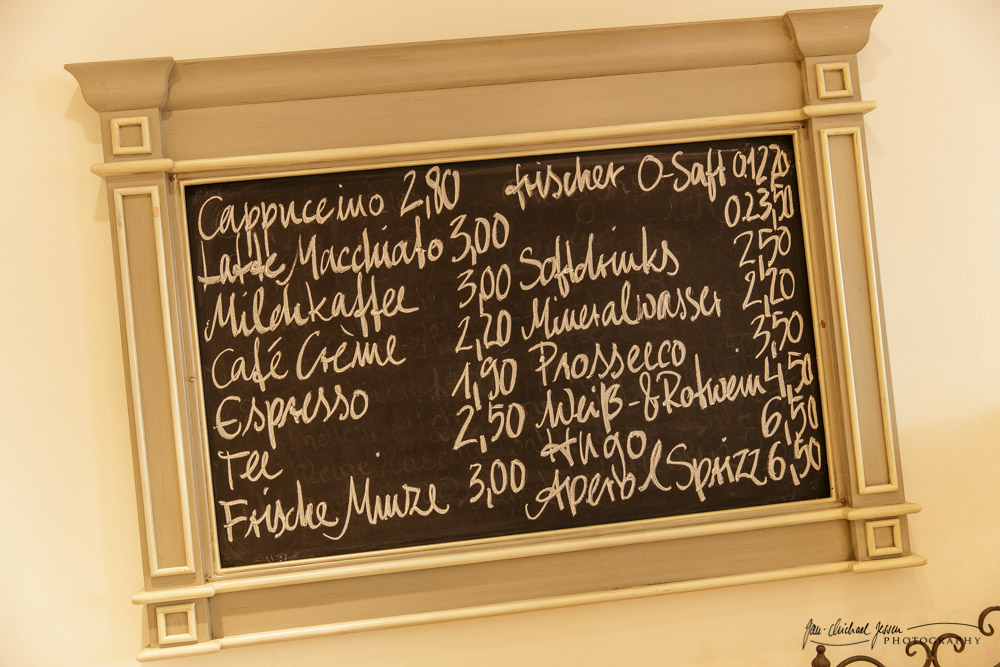 Cappuccino 2,80
Latte Macchiato 3,00
Milchkaffee 3,00
Café Crème 2,20
Espresso 1,90
Tee 2,50
Frische Minze 3,00
frischer O-Saft 0.1 2,20
0.2 3,50
Softdrinks 2,50
Mineralwasser 2,20
Prossecco 3,50
Weiß-&Rotwein 4,50
Hugo 6,50
Aperol Sprizz 6,50
Jan-Michael Jessen
PHOTOGRAPHY